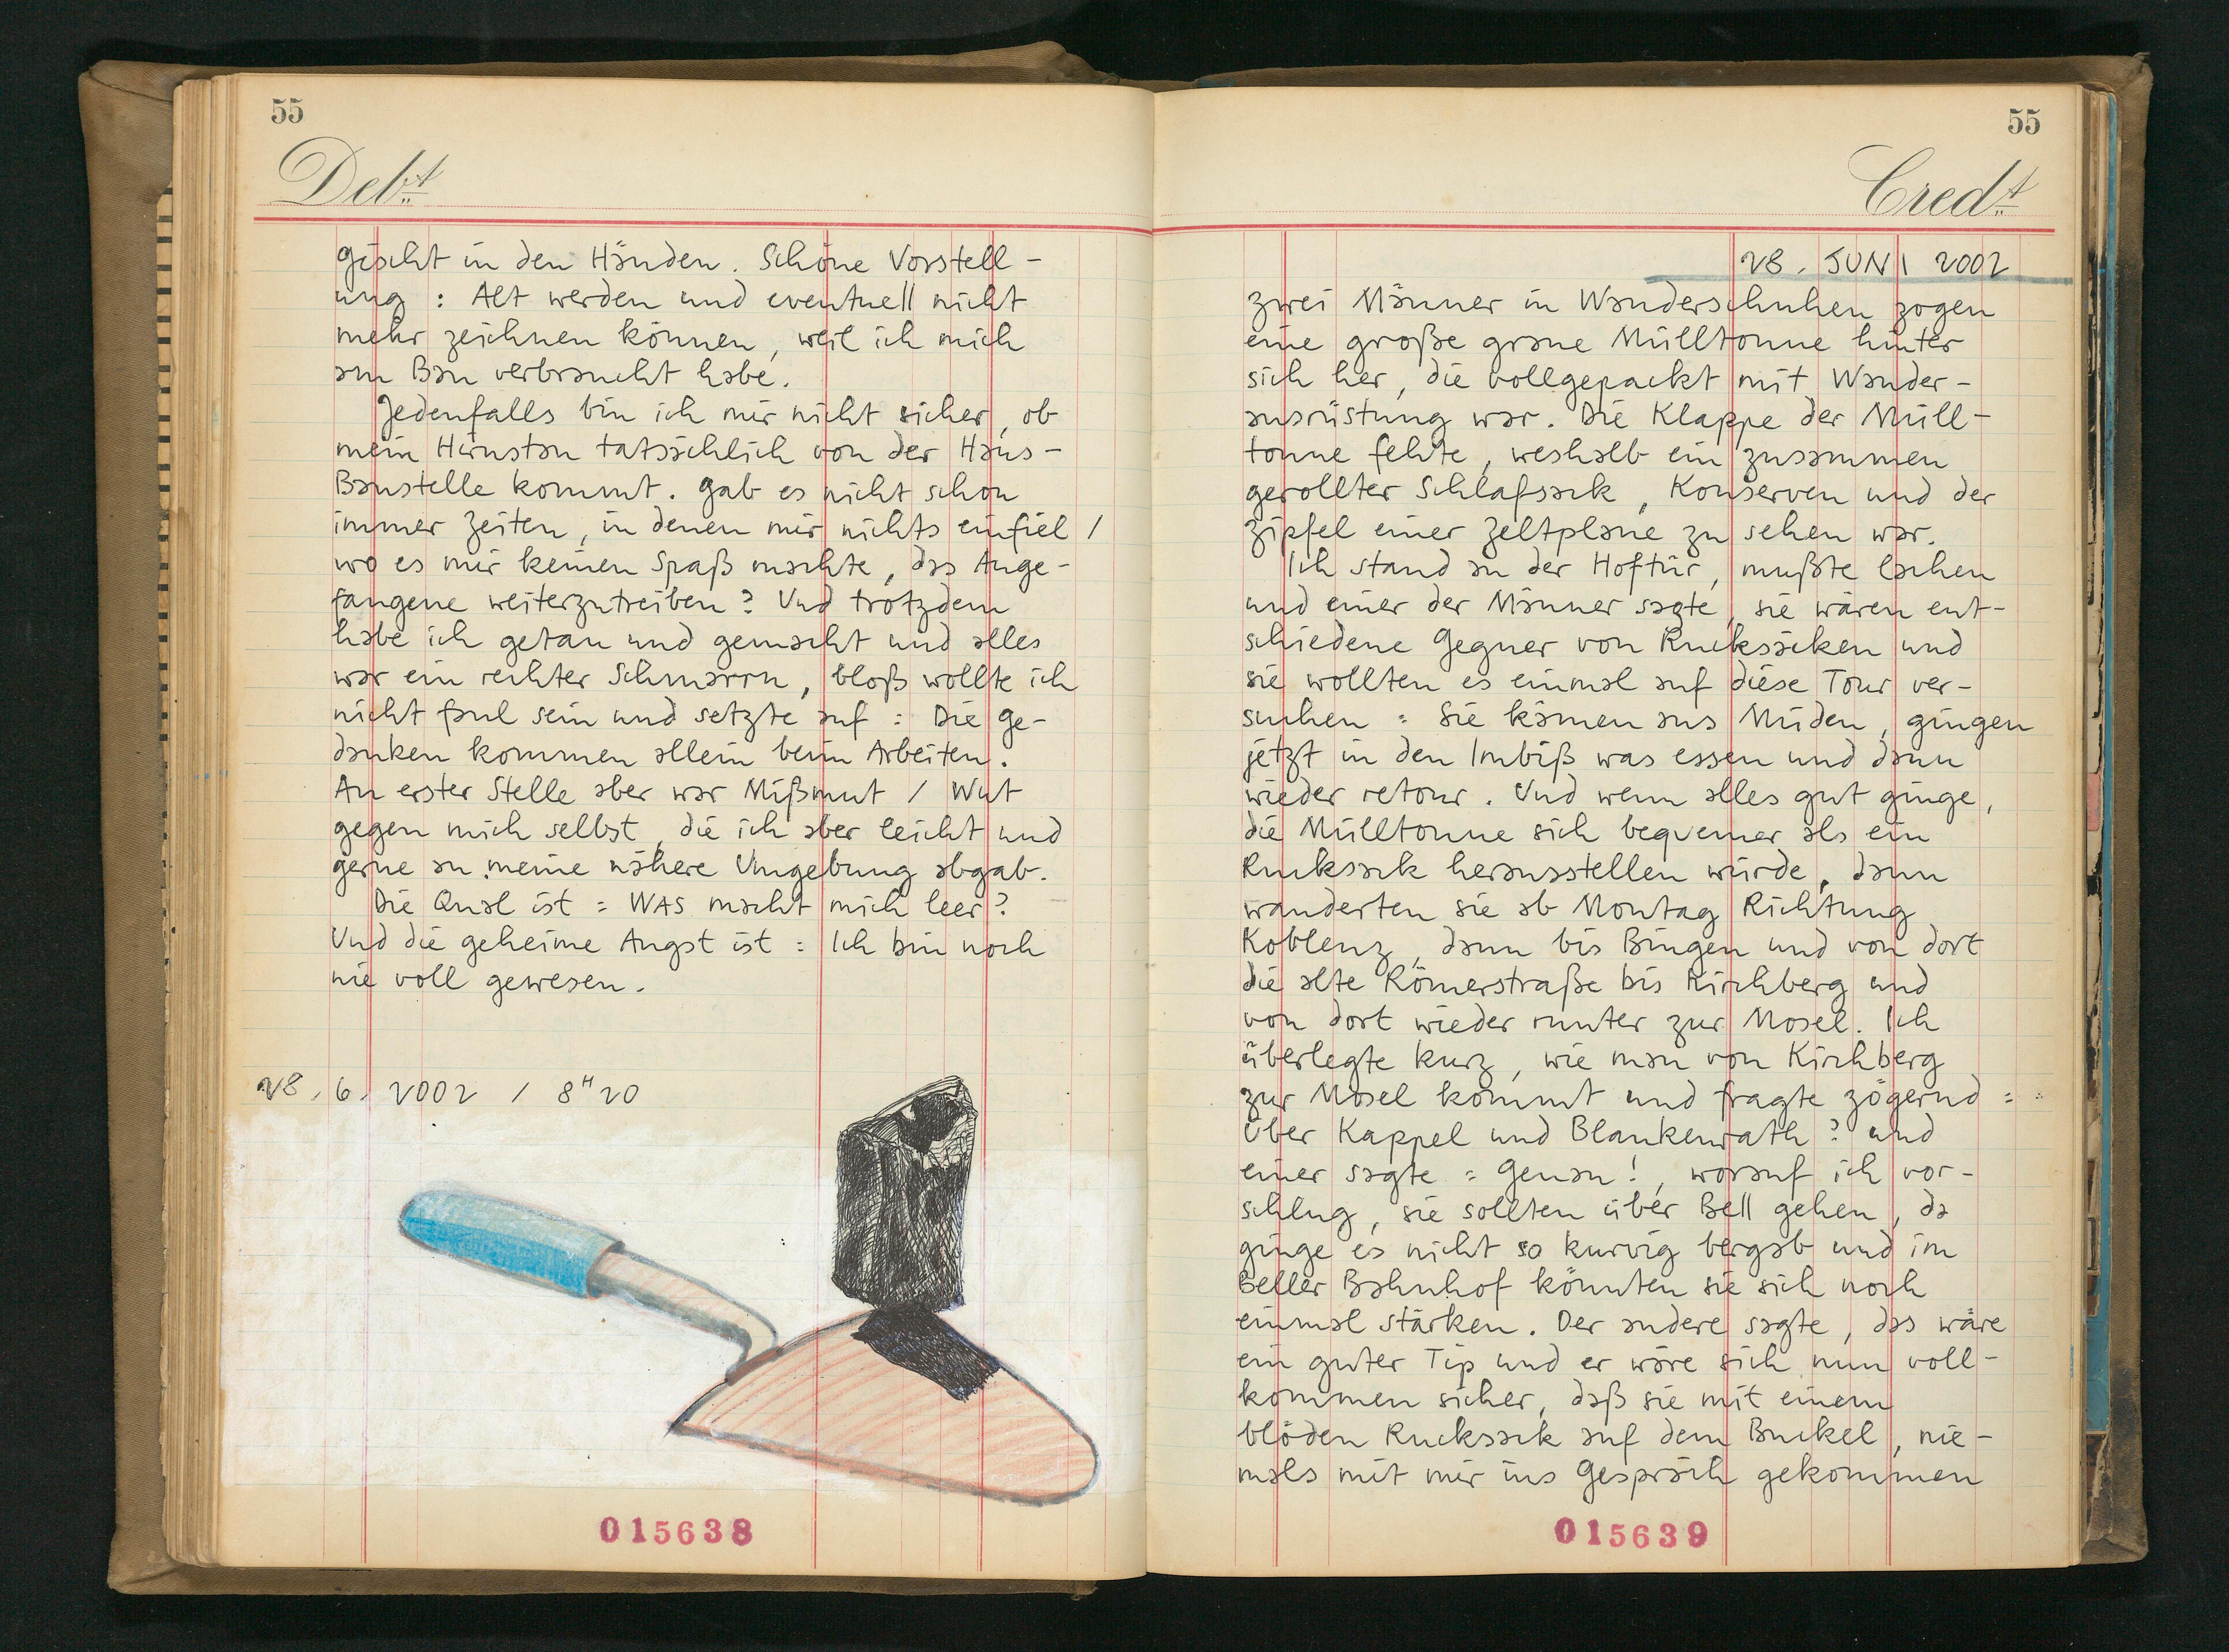 55
Debt
Gischt in den Händen. Schöne Vorstell-
ung : Alt werden und eventuell nicht
mehr zeichnen können, weil ich mich
am Bau verbraucht habe.
Jedenfalls bin ich mir nicht sicher, ob
mein Hirnstau tatsächlich von der Haus-
Baustelle kommt. Gab es nicht schon
immer Zeiten, in denen mir nichts einfiel /
wo es mir keinen Spaß machte, das Ange-
fangene weiterzutreiben? Und trotzdem
habe ich getan und gemacht und alles
war ein rechter Schmarrn, bloß wollte ich
nicht faul sein und setzte auf : Die Ge-
danken kommen allein beim Arbeiten.
An erster Stelle aber war Mißmut / Wut
gegen mich selbst, die ich aber leicht und
gerne an meine nähere Umgebung abgab.
Die Qual ist : WAS macht mich leer?
Und die geheime Angst ist : Ich bin noch
nie voll gewesen.
28. 6. 2002 / 8H20
015638
55
Credt
28. JUNI 2002
Zwei Männer in Wanderschuhen zogen
eine große graue Mülltonne hinter
sich her, die vollgepackt mit Wander-
ausrüstung war. Die Klappe der Müll-
tonne fehlte, weshalb ein zusammen
gerollter Schlafsack, Konserven und der
Zipfel einer Zeltplane zu sehen war.
Ich stand an der Hoftür, mußte lachen
und einer der Männer sagte, sie wären ent-
schiedene Gegner von Rucksäcken und
sie wollten es einmal auf diese Tour ver-
suchen : Sie kämen aus Müden, gingen
jetzt in den Imbiß was essen und dann
wieder retour. Und wenn alles gut ginge,
die Mülltonne sich bequemer als ein
Rucksack herausstellen würde, dann
wanderten sie ab Montag Richtung
Koblenz, dann bis Bingen und von dort
die alte Römerstraße bis Kirchberg und
von dort wieder runter zur Mosel. Ich
überlegte kurz, wie man von Kirchberg
zur Mosel kommt und fragte zögernd :
Über Kappel und Blankenrath? und
einer sagte : Genau!, worauf ich vor-
schlug, sie sollten über Bell gehen, da
ginge es nicht so kurvig bergab und im
Beller Bahnhof könnten sie sich noch
einmal stärken. Der andere sagte, das wäre
ein guter Tip und er wäre sich nun voll-
kommen sicher, daß sie mit einem
blöden Rucksack auf dem Buckel, nie-
mals mit mir ins Gespräch gekommen
015639